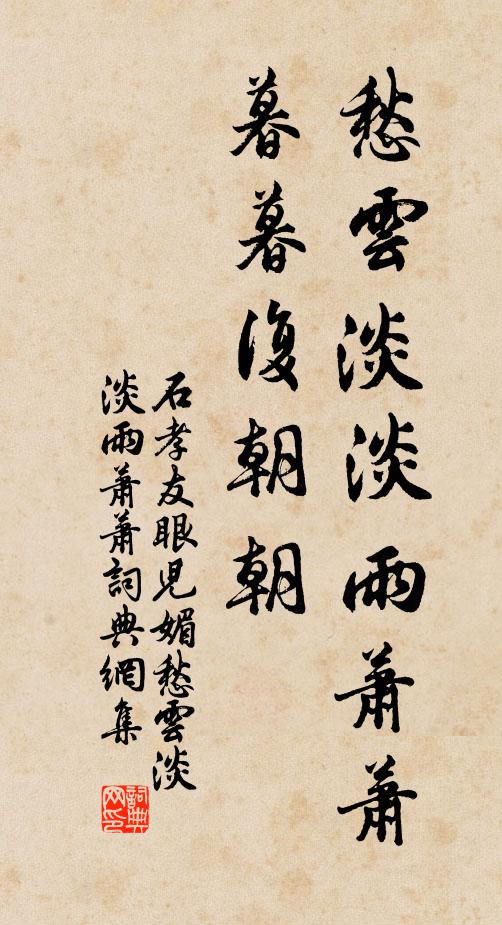 愁雲淡淡雨蕭蕭
暮暮復朝朝
石孝友眼児媚愁雲淡
淡雨蕭蕭詞典網集
詞典
网印